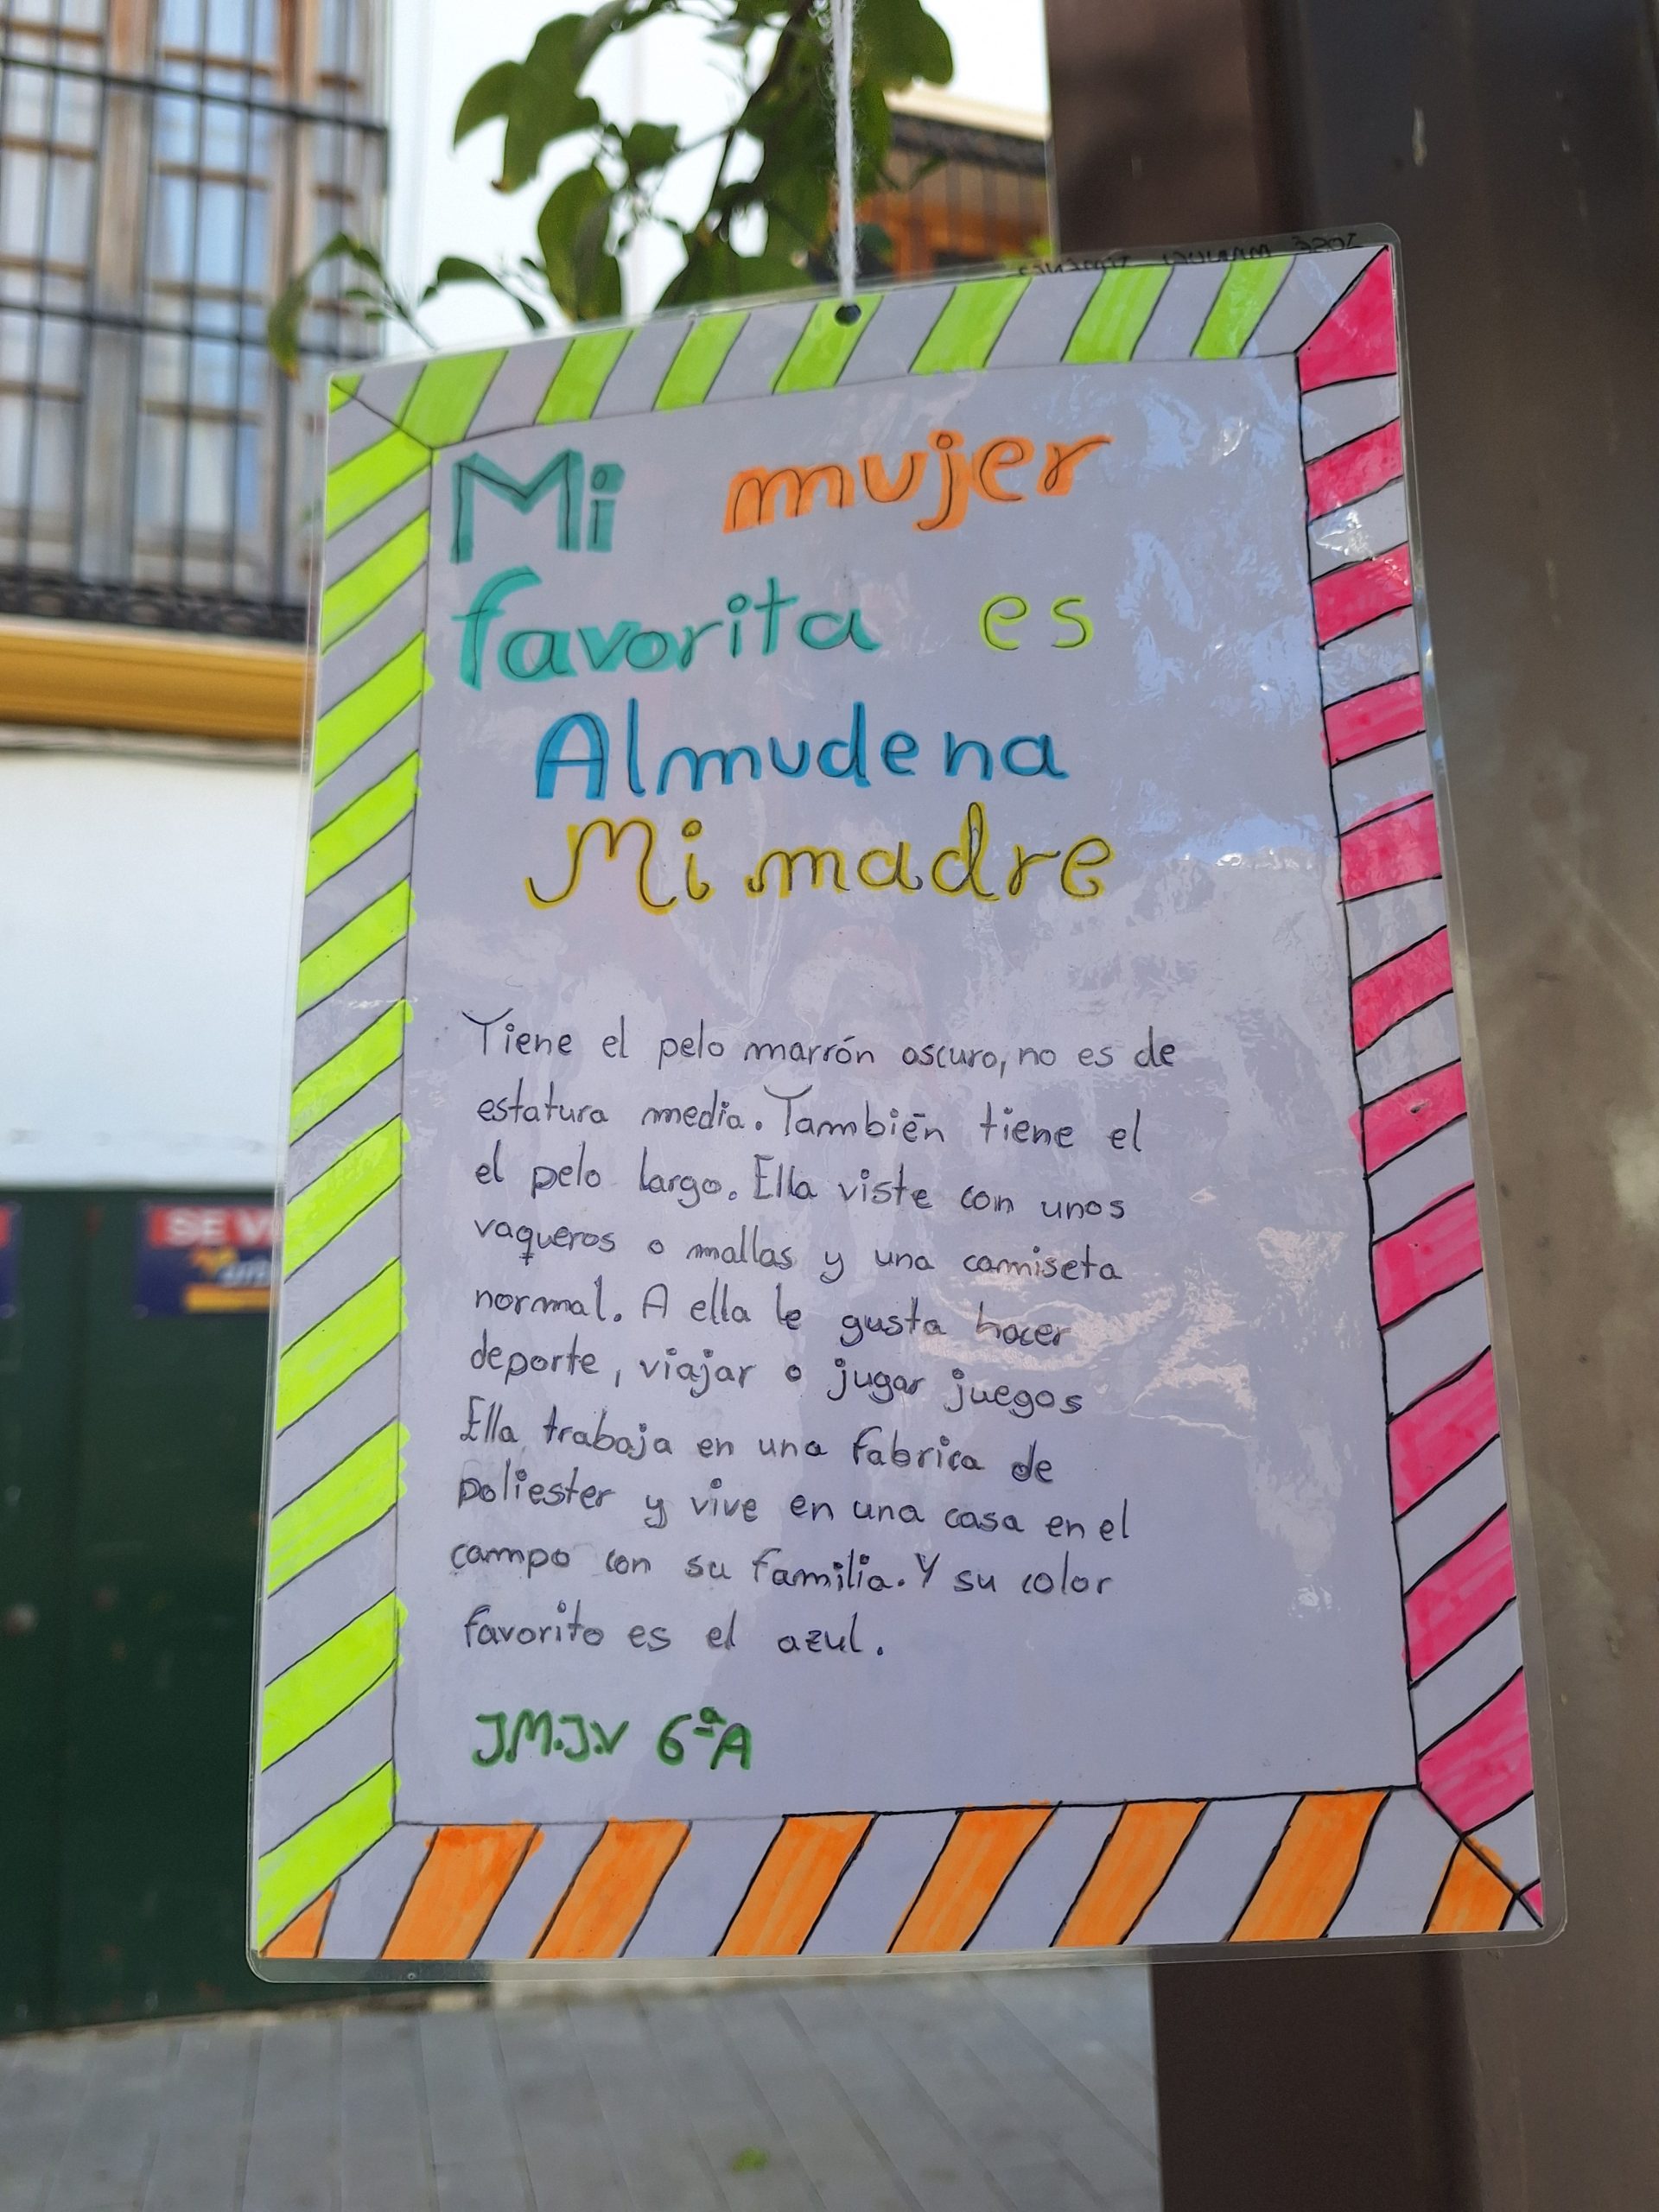 Mi mujer
favorita es
Almudena
Mi madre
Tiene el pelo marrón oscuro, no es de
estatura media. También tiene el
el pelo largo. Ella viste con unos
vaqueros o mallas y una camiseta
normal. A ella le gusta hacer
deporte, viajar o jugar juegos
Ella trabaja en una fabrica de
poliester y vive en una casa en el
campo con su familia. Y su color
favorito es el azul.
J.M.J.V 6ªA
SE VE